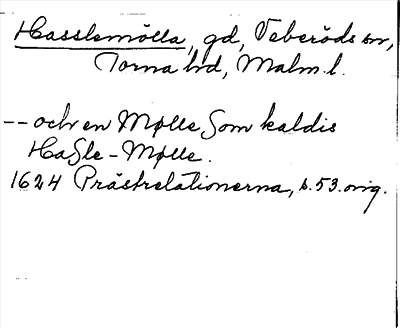 Hasslemölla, gd, Veberöds sn,
Torna hd, Malm. l.
-- och en Mølle som kaldis
Hasle-Mølle.
1624 Prästrelationerna, s. 53. orig.